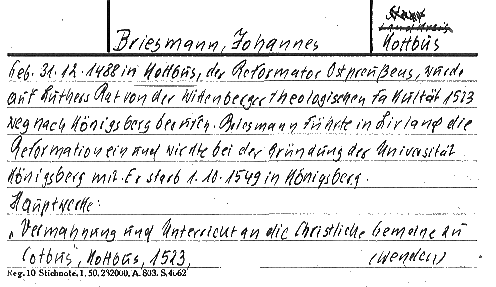 Stadt
Landkreis
Briesmann, Johannes Kottbus
Geb. 31.12.1488 in Kottbus, der Reformator Ostpreußens, wurde
auf Luthers Rat von der Wittenberger theologischen Fakultät 1523
weg nach Königsberg berufen. Briesmann führte in Livland die
Reformation ein und wirkte bei der Gründung der Universität
Königsberg mit. Er starb 1.10.1549 in Königsberg.
Hauptwerke:
„Vermahnung und Unterricht an die Christliche Gemeine zu
Cotbus", Kottbus, 1523,
(wenden)
Reg. 10 Stichnote, 1. 50. 232000. A. 803. S. 4662